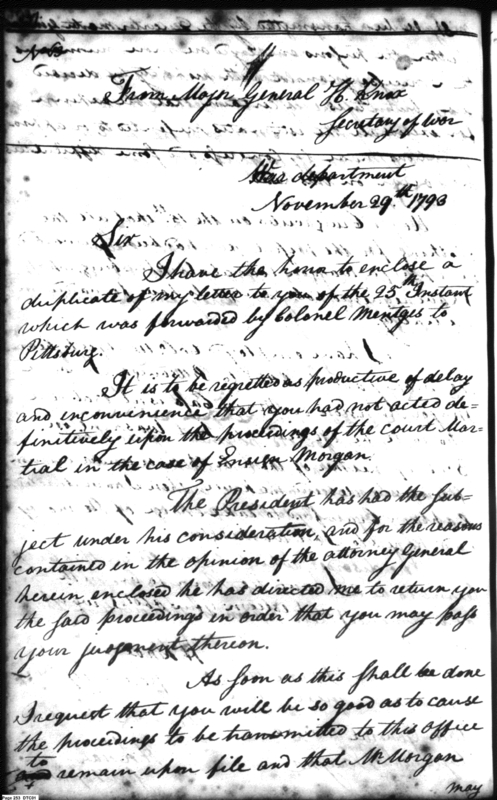 From Major General H. Knox
Secretary of War
War department
November 29th. 1793
Sir
I have the honor to enclose a
duplicate of my letter to you of the 25th Instant
which was forwarded by Colonel Mentges to
Pittsburg.
It is to be regretted as productive of delay
and inconvenience that you had not acted de=
finitively upon the proceedings of the court Mar=
tial in the case of Ensign Morgan.
The President has had the sub=
ject under his consideration, and for the reasons
contained in the opinion of the attorney General
herein enclosed he has directed me to return you
the said proceedings in order that you may pass
your judgement thereon.
As soon as this shall be done
I request that you will be so good as to cause
the proceedings to be transmitted to this office
to remain upon file and that Mr Morgan
may
Page 253 DTC01